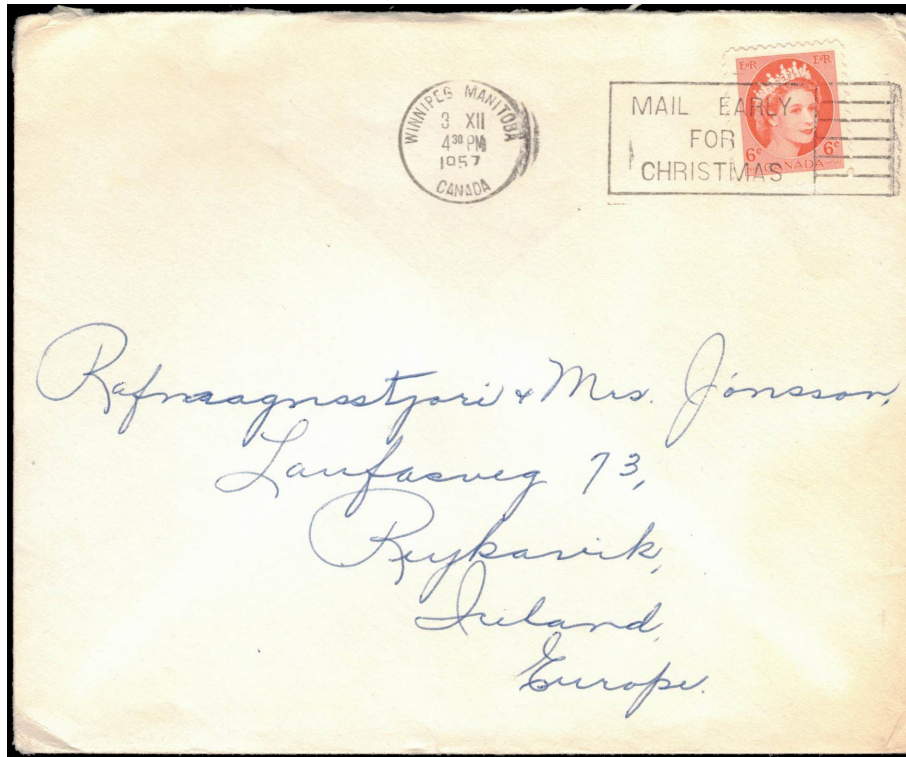 WINNIPEG MANITOBA
3 XII
4³⁰ PM
1957
CANADA
MAIL EARLY
FOR
CHRISTMAS
E II R E II R
6¢ 6¢
CANADA
Rafmagnsstjori & Mrs. Jónsson,
Laufasveg 73,
Reykavik,
Ireland,
Europe.